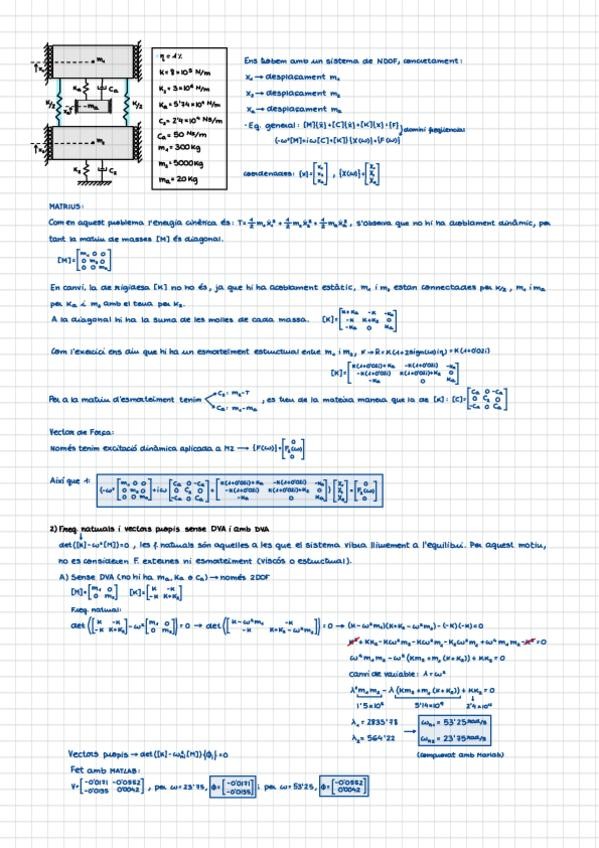 η = 1%
K = 8×10⁵ N/m
K₂ = 3×10⁶ N/m
Kₐ = 5'74×10⁴ N/m
C₂ = 2'4×10⁴ Ns/m
Cₐ = 50 Ns/m
m₁ = 300 Kg
m₂ = 5000 Kg
mₐ = 20 Kg
Ens trobem amb un sistema de NDOF, concretament:
x₁ → desplaçament m₁
x₂ → desplaçament m₂
xₐ → desplaçament mₐ
- Eq. general: [M]{ẍ} + [C]{ẋ} + [K]{x} = {F}
domini freqüencial
(-ω²[M] + iω[C] + [K]){X(ω)} = {F(ω)}
coordenades: {x} = [x₁ x₂ xₐ], {X(ω)} = [X₁ X₂ Xₐ]
MATRIUS:
Com en aquest problema l'energia cinètica és: T = ½ m₁ẋ₁² + ½ m₂ẋ₂² + ½ mₐẋₐ², s'observa que no hi ha acoblament dinàmic, per
tant la matriu de masses [M] és diagonal.
[M] = [m₁ 0 0; 0 m₂ 0; 0 0 mₐ]
En canvi, la de rigidesa [K] no ho és, ja que hi ha acoblament estàtic, m₁ i m₂ estan connectades per K/2, m₁ i mₐ
per Kₐ i m₂ amb el terra per K₂.
A la diagonal hi ha la suma de les molles de cada massa. [K] = [K+Kₐ -K -Kₐ; -K K+K₂ 0; -Kₐ 0 Kₐ]
Com l'exercici ens diu que hi ha un esmorteïment estructural entre m₁ i m₂, K → K̄ = K(1+2sign(ω)iη) = K(1+0'02i)
[K] = [K(1+0'02i)+Kₐ -K(1+0'02i) -Kₐ; -K(1+0'02i) K(1+0'02i)+K₂ 0; -Kₐ 0 Kₐ]
Per a la matriu d'esmorteïment tenim C₂: m₂-T, es treu de la mateixa manera que la de [K]: [C] = [Cₐ 0 -Cₐ; 0 C₂ 0; -Cₐ 0 Cₐ]
Cₐ: m₁-mₐ
Vector de Força:
Només tenim excitació dinàmica aplicada a M2 → {F(ω)} = [0 F₂(ω) 0]
Així que
2) Freq. naturals i vectors propis sense DVA i amb DVA
det([K]-ω²[M]) = 0, les f. naturals són aquelles a les que el sistema vibra lliurement a l'equilibri. Per aquest motiu,
no es consideren F. externes ni esmorteïment (viscós o estructural).
A) Sense DVA (no hi ha mₐ, Kₐ o Cₐ) → només 2DOF
[M] = [m₁ 0; 0 m₂] [K] = [K -K; -K K+K₂]
Freq. natural:
det([K -K; -K K+K₂] - ω²[m₁ 0; 0 m₂]) = 0 → det([K-ω²m₁ -K; -K K+K₂-ω²m₂]) = 0 → (K-ω²m₁)(K+K₂-ω²m₂)-(-K)(-K) = 0
K² + KK₂ - Kω²m₂ - Kω²m₁ - K₂ω²m₁ + ω⁴m₁m₂ - K² = 0
ω⁴m₁m₂ - ω²(Km₂ + m₁(K+K₂)) + KK₂ = 0
Canvi de variable: λ = ω²
λ²m₁m₂ - λ(Km₂ + m₁(K+K₂)) + KK₂ = 0
1'5×10⁶ 5'14×10⁹ 2'4×10¹²
λ₁ = 2835'78 → ωn₁ = 53'25 rad/s
λ₂ = 564'22 ωn₂ = 23'75 rad/s
(comprovat amb Matlab)
Vectors propis → det([K]-ω²[M]){ϕᵢ} = 0
Fet amb MATLAB:
V = [-0'0171 -0'0552; -0'0135 0'0042], per ω = 23'75, ϕ = [-0'0171 -0'0135] i per ω = 53'25, ϕ = [-0'0552 0'0042]